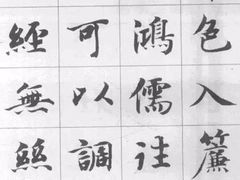 色入簾
鴻儒往
可以調
經無絲